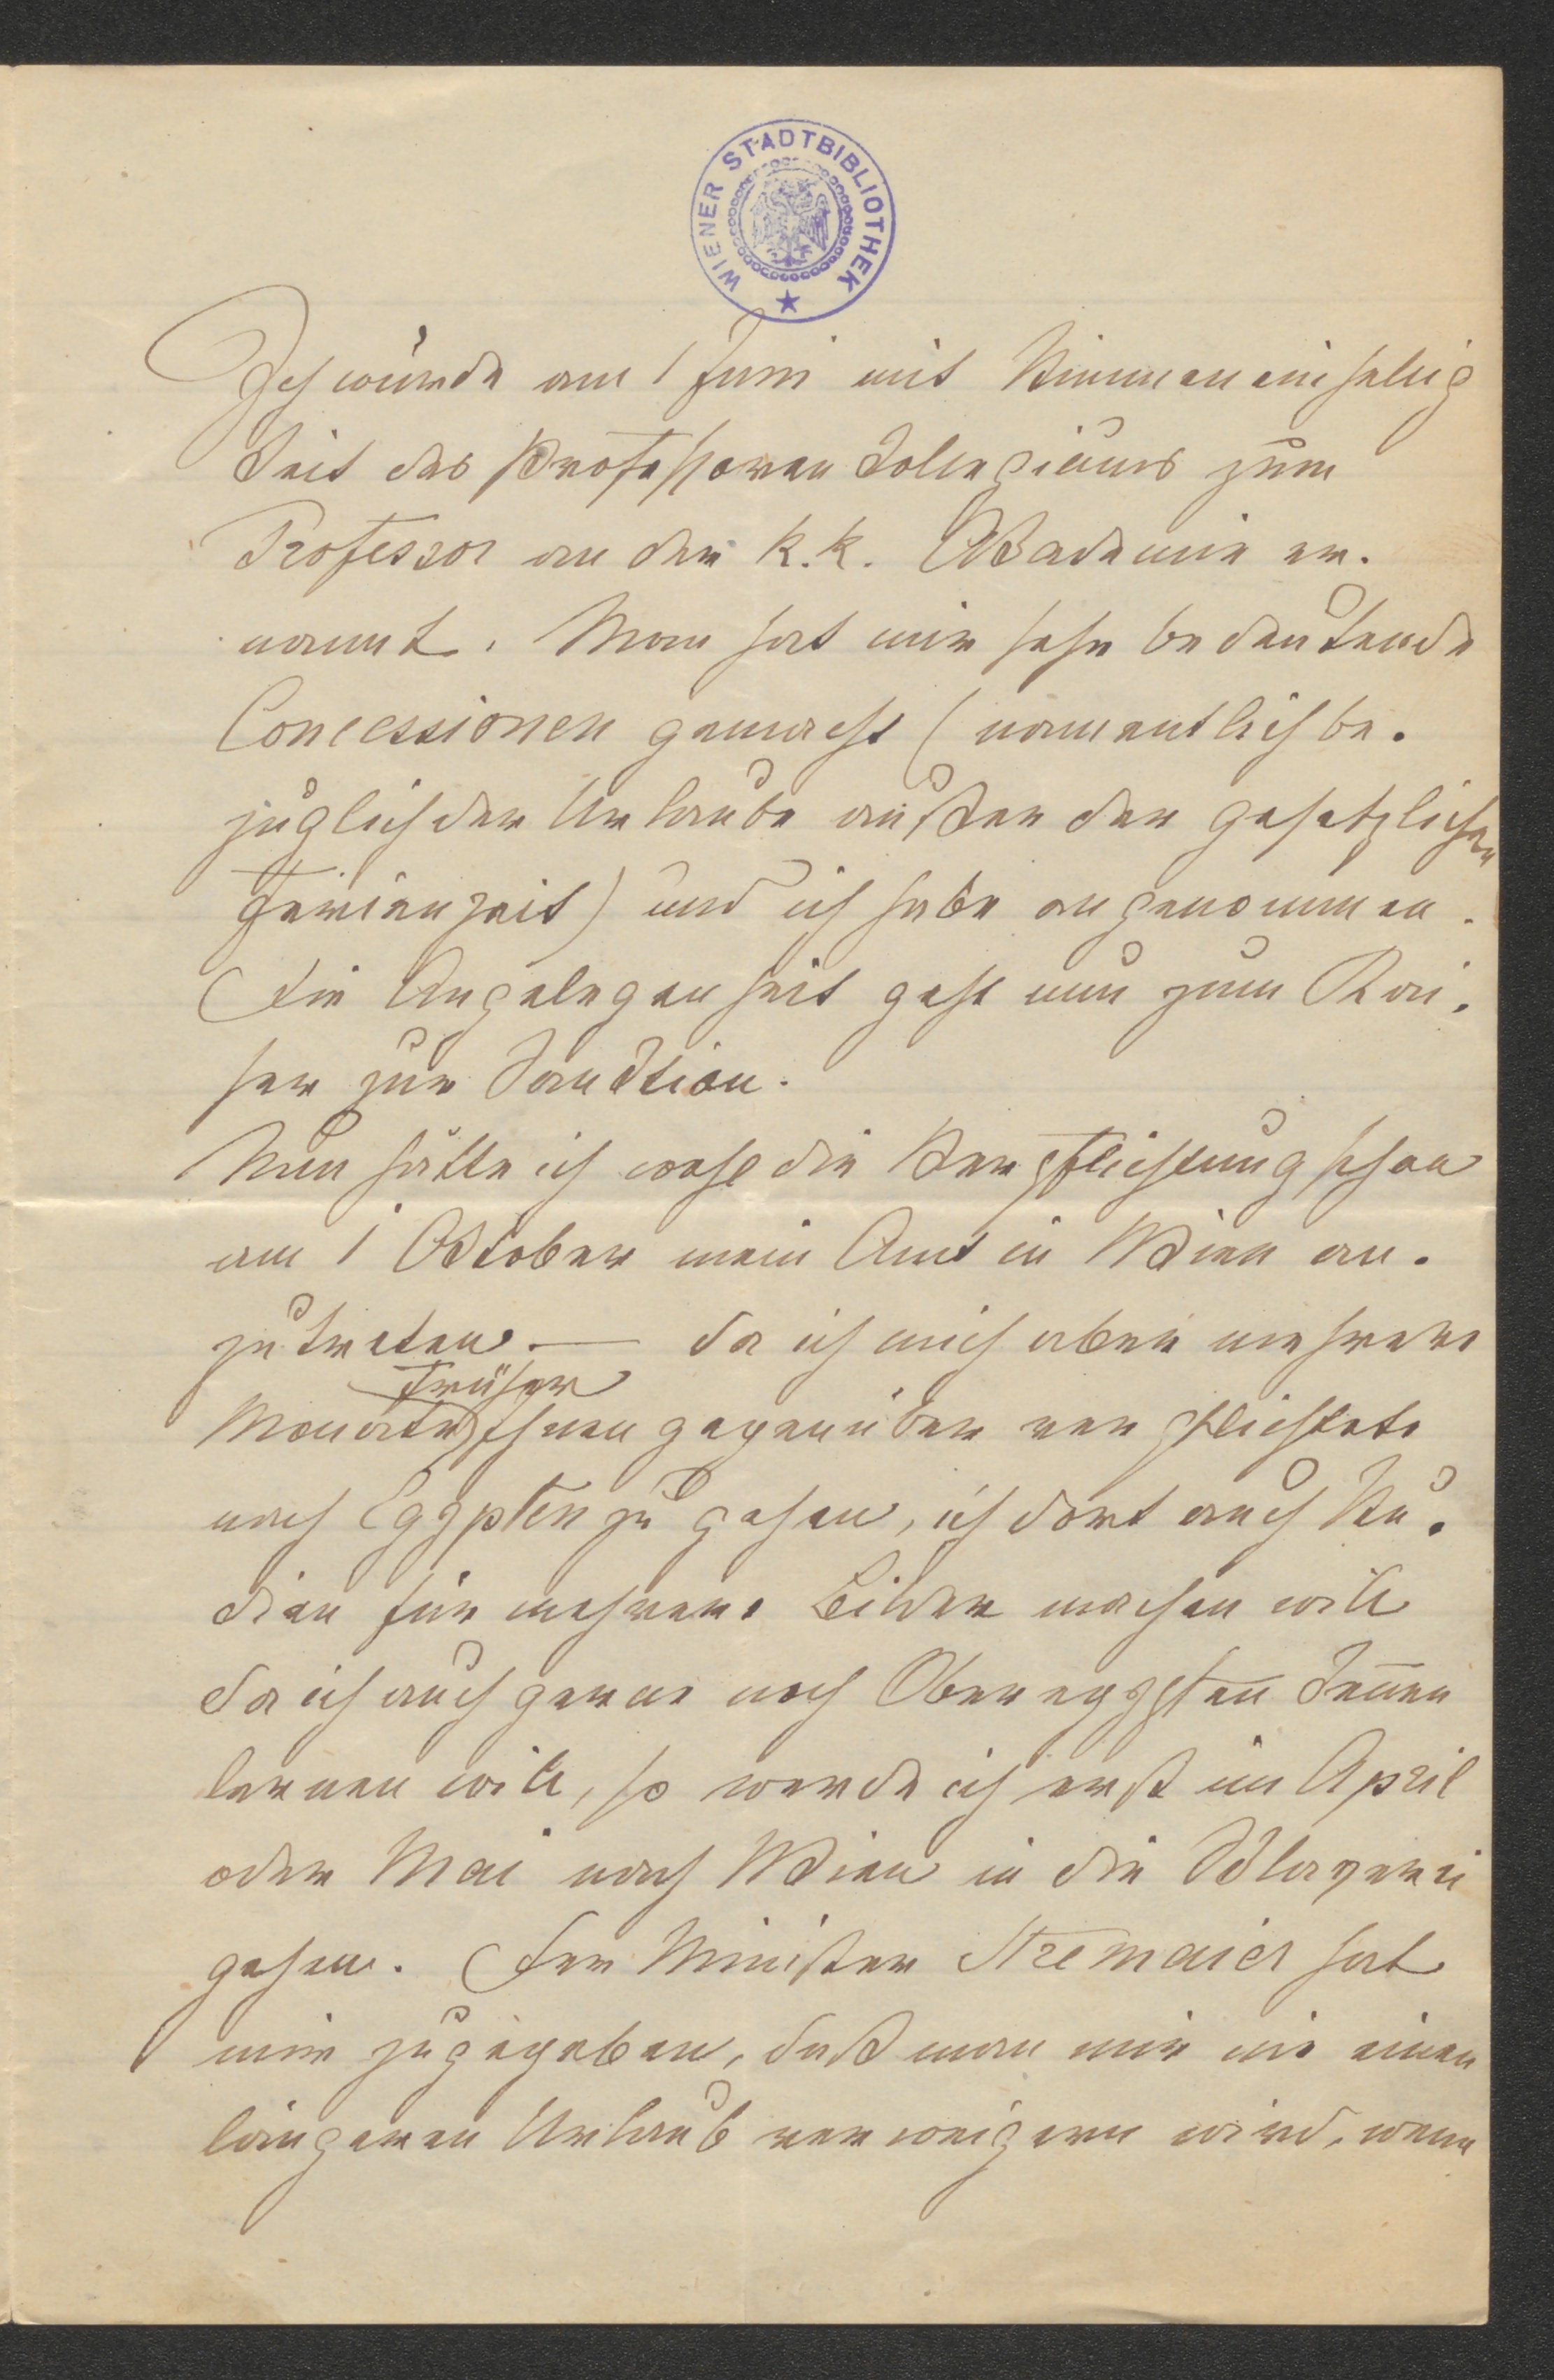 WIENER STADTBIBLIOTHEK
Ich wurde am 1 Juni mit Stimmeneinhellig
keit des Professoren Kollegiums zum
Professor an der k.k. Akademie er.
nannt. Man hat mir sehr bedeutende
Concessionen gemacht (namentlich be.
züglich der Urlaube außer der gesetzlichen
Ferienzeit) und ich habe angenommen.
Die Angelegenheit geht nun zum Kai.
ser zur Sanktion.
Nun hätte ich wohl die Verpflichtung schon
am 1 Oktober mein Amt in Wien an.
zutreten. — da ich mich aber mehrere
früher
Monate Ihnen gegenüber verpflichtete
nach Egypten zu gehen, ich dort auch Stu.
dien für mehrere Bilder machen will
da ich auch gerne noch Oberegypten kennen
lernen will, so werde ich erst im April
oder Mai nach Wien in die Sklaverei
gehen. Der Minister Stremaier hat
mir zugegeben, daß man mir nie einen
längeren Urlaub verweigern wird, wenn